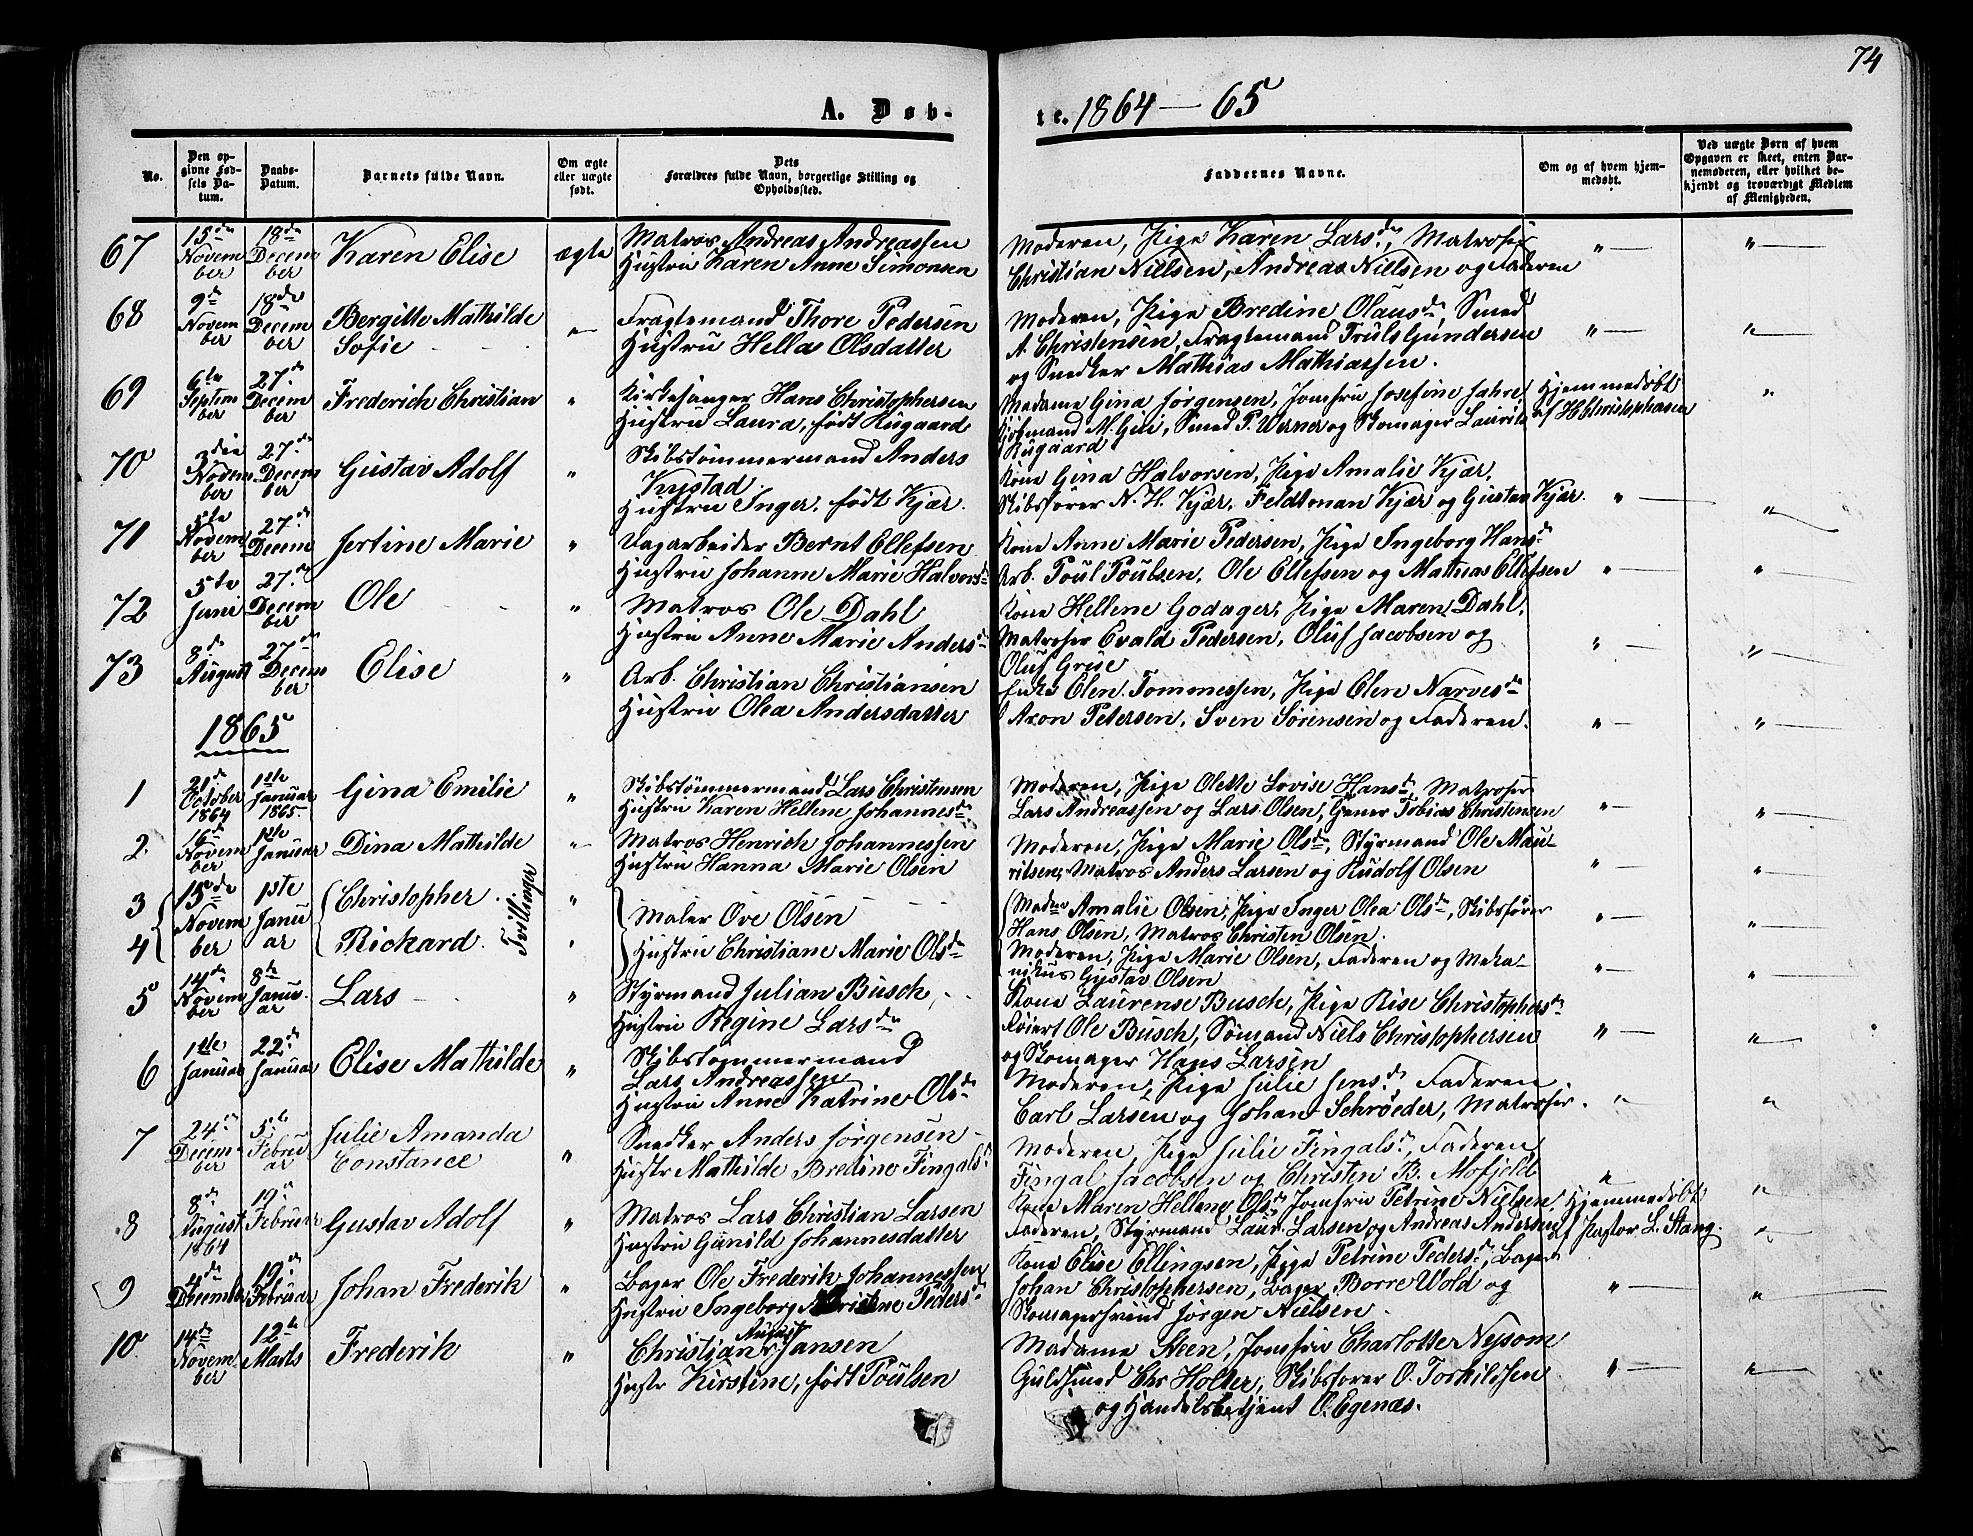 74
A. Døb-
te. 1864 — 65
No.
Den op-
givne Fød-
sels Da-
tum.
Daabs-
Datum.
Barnets fulde Navn.
Om ægte
eller uægte
født.
Dets
Forældres fulde Navn, borgerlige Stilling og
Opholdssted.
Faddernes Navne.
Om og af hvem hjem-
medøbt.
Ved uægte Børn af hvem
Opgaven er skeet, enten Bar-
nemoderen, eller hvilket be-
kjendt og troværdigt Medlem
af Menigheden.
67
15de
Novem
ber
18de
Decem
ber
Karen Elise
ægte
Matros Andreas Andreassen
Hustru Karen Anne Simonsen
Moderen, Pige Karen Larsdr, Matroser
Christian Nielsen, Andreas Nielsen og Faderen
" —
" —
68
9de
Novem
ber
18de
Decem
ber
Bergitte Mathilde
Sofie
" —
Fragtemand Thore Pedersen
Hustru Hella Olsdatter
Moderen, Pige Bredine Olausdr, Smed
A Christensen, Fragtemand Truls Gundersen
og Snedker Mathias Mathiassen.
" —
" —
69
6te
Septem
ber
27de
Decem
ber
Frederich Christian
"
Kirkesanger Hans Christophersen
Hustru Laura, født Rugaard
Madame Gina Jørgensen, Jomfru Josefine Jahre,
Kjøbmand M. Gui, Smed P. Werner og Skomager Laurits
Rugaard
Hjemmedøbt
af H Christophersen
"
70
3die
Novem
ber
27de
Decem
ber
Gustav Adolf
"
Skibstømmermand Anders
Krystad.
Hustru Inger, født Kjær.
Kone Gina Halvorsen, Pige Amalie Kjær,
Skibsfører N. H. Kjær, Feldtman Kjær og Gustav Kjær.
" —
" —
71
5te
Novem
ber
27de
Decem
ber
Jertine Marie
"
Dagarbeider Bernt Ellefsen
Hustru Johanne Marie Halvorsdr
Kone Anne Marie Pedersen, Pige Ingeborg Hansdr
Arb. Poul Poulsen, Ole Ellefsen og Mathias Ellefsen
" —
" —
72
5te
Juni
27de
Decem
ber
Ole
"
Matros Ole Dahl
Hustru Anne Marie Andersdr
Kone Hellene Godager, Pige Maren Dahl,
Matroser Evald Pedersen, Oluf Jacobsen og
Oluf Grue
" —
" —
73
8de
August
27de
Decem
ber
Elise
"
Arb. Christian Christiansen
Hustru Olea Andersdatter
Enke Elen Tommessen, Pige Elen Narvesdr
Axon Petersen, Sven Sørensen og Faderen.
" —
" —
1865
1
21de
October
1864
1ste
Januar
1865.
Gina Emilie
"
Skibstømmermand Lars Christensen
Hustru Karen Hellene Johannesdr.
Moderen, Pige Olette Lovise Hansdr, Matroser
Lars Andreassen og Lars Olsen, Garver Tobias Christensen
" —
" —
2.
16de
Novem
ber
1ste
Januar
Dina Mathilde
" —
Matros Henrich Johannessen
Hustru Hanna Marie Olsen
Moderen, Pige Marie Olsdr, Styrmand Ole Mau-
ritsen, Matros Anders Larsen og Rudolf Olsen
" —
" —
3
4
15de
Novem
ber
1ste
Janu
ar
Christopher.
Richard.
Tvillinger
"
"
Maler Ove Olsen
Hustru Christiane Marie Olsdr
Madme Amalie Olsen, Pige Inger Olea Olsdr, Skibsfører
Hans Olsen, Matros Christen Olsen.
Moderen, Pige Marie Olsen, Faderen og Meka-
nikus Gustav Olsen
" —
" —
" —
" —
5
14de
Novem
ber
8de
Janu.
ar
Lars
"
Styrmand Julian Busch,
Hustru Regine Larsdr
Kone Laurense Busch, Pige Rise Christophersdr
Føiert Ole Busch, Sømand Niels Christophersen
og Skomager Hans Larsen
" —
" —
6
1ste
Januar
22de
Januar
Elise Mathilde
"
Skibstømmermand
Lars Andreassen
Hustru Anne Katrine Olsdr
Moderen, Pige Julie Jensdr, Faderen,
Carl Larsen og Johan Schrøeder, Matroser.
" —
"
7
24de
Decem
ber
5te
Febru
ar
Julie Amanda
Constance
"
Snedker Anders Jørgensen
Hustr Mathilde Bredine Fingalsdr
Moderen, Pige Julie Fingalsdr, Faderen,
Fingal Jacobsen og Christen B. Mofjeld
"
" —
8
8de
August
1864
19de
Februar
Gustav Adolf
"
Matros Lars Christian Larsen
Hustru Gunild Johannesdatter
Kone Maren Hellene Olsdr, Jomfru Petrine Nielsen,
Faderen, Styrmand Laur. Larsen og Andreas Andersen
Hjemmedøbt
af Pastor L. Stang.
" —
9
4de
December
19de
Februar
Johan Frederik
"
Bager Ole Frederik Johannessen
Hustru Ingeborg Kristine Pedersdr
Kone Elise Ellingsen, Pige Petrine Pedersdr, Bager
Johan Christophersen, Bager Borre Wold og
Skomagersvend Jørgen Nielsen.
" —
" —
10.
14de
Novem
ber
12te
Marts
Frederik
"
Christian August Jansen
Hustr Kirstine, født Poulsen
Madame Steen, Jomfru Charlotte Nysom
Guldsmed Chr Holter, Skibsfører O. Torkildsen
og Handelsbetjent O. Egenæs.
" —
" —